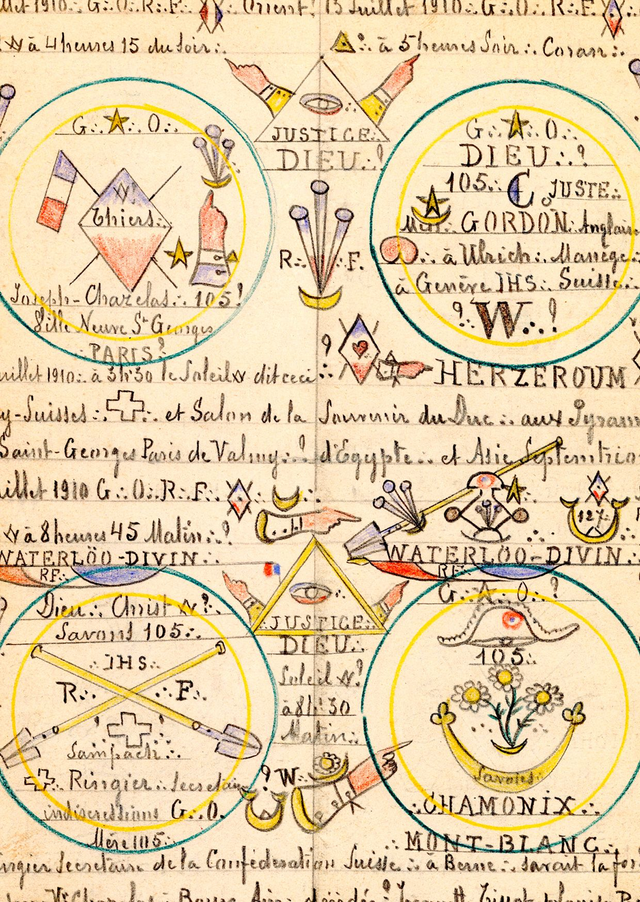 1910.∴ G∴O∴R∴F∴ Orient! 13 Juillet 1910.∴ G∴O∴R∴F∴
à 4 heures 15 du Soir∴ ∴? à 5 heures Soir∴ Coran∴
G∴ O∴
Thiers∴
Joseph-Chazelas∴ 105?
Ville Neuve St Georges
PARIS?
JUSTICE∴
DIEU∴?
R∴ F∴
G∴ O∴
DIEU∴?
105∴ JUSTE
GORDON∴ Anglais
∴ à Ulrich∴ Manège
à Genève IHS∴ Suisse∴
?∴ W∴∴?
Juillet 1910∴ à 3h30 le Soleil dit ceci∴? HERZEROUM
-Suisses∴ ∴ et Salon de la Souvenir du Duc∴ aux Pyram
Saint-Georges Paris de Valmy∴? d'Egypte∴ et Asie Septentrio
Juillet 1910 G∴O∴R∴F∴
à 8 heures 45 Matin∴?
127∴
WATERLÖO-DIVIN∴ WATERLÖO-DIVIN∴
RF∴ RF∴
Dieu∴ Christ ?
Savons 105∴
∴IHS∴
R∴ F∴
Sampach∴
Ringier∴ Secretair
indiscressions G∴O
Mère 105∴
JUSTICE∴
DIEU∴
Soleil ?
à 8h30
Matin∴
? W∴
G∴ O∴?
105∴
Savoies∴
∴CHAMONIX∴
∴MONT-BLANC∴
Ringier Secretaire de la Confédération Suisse∴ à Berne∴ Savait la